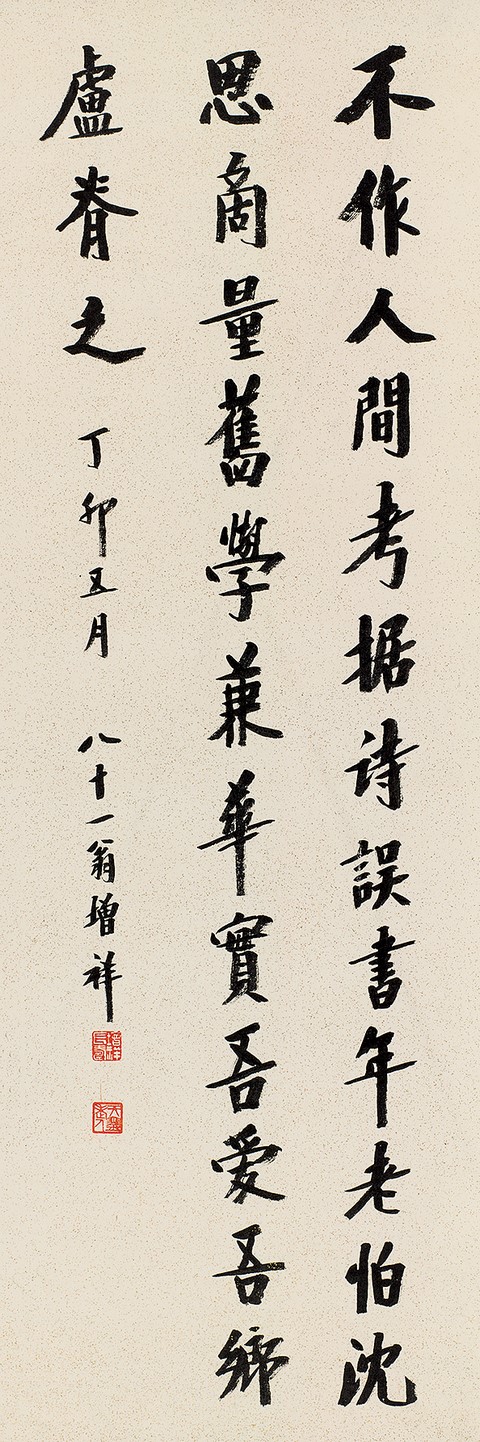 不作人間考据诗誤書年老怕沈
思商量舊學兼華實吾愛吾鄉
盧脊之
丁卯五月 八十一翁增祥